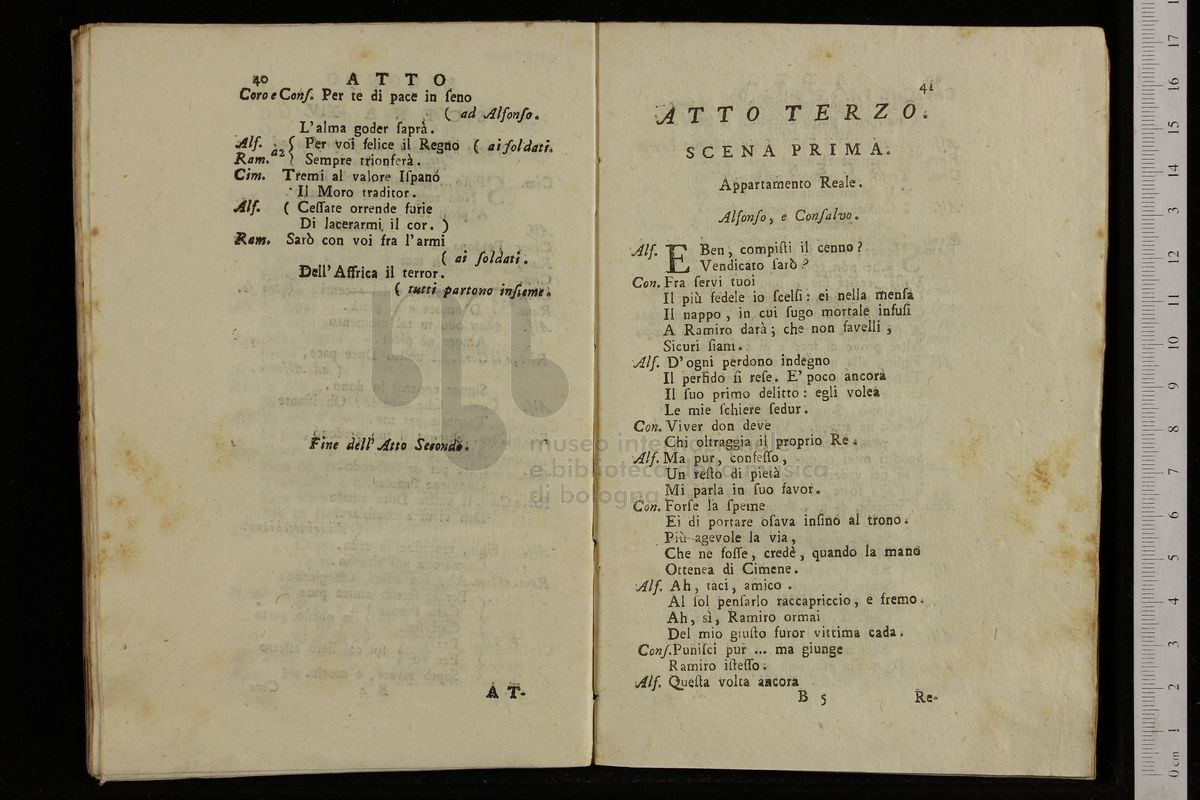 40 A T T O
Coro e Conſ. Per te di pace in ſeno
( ad Alfonſo.
L'alma goder ſaprà.
Alf. Per voi felice il Regno ( ai ſoldati.
a2
Ram. Sempre trionferà.
Cim. Tremi al valore Iſpano
Il Moro traditor.
Alf. ( Ceſſate orrende furie
Di lacerarmi il cor. )
Ram. Sarò con voi fra l'armi
( ai ſoldati.
Dell' Affrica il terror.
( tutti partono inſieme.
Fine dell' Atto Secondo.
A T-
41
ATTO TERZO.
SCENA PRIMA.
Appartamento Reale.
Alfonſo, e Conſalvo.
Alf. E Ben, compiſti il cenno?
Vendicato ſarò?
Con. Fra ſervi tuoi
Il più fedele io ſcelſi: ei nella menſa
Il nappo, in cui ſugo mortale infuſi
A Ramiro darà; che non favelli,
Sicuri ſiam.
Alf. D'ogni perdono indegno
Il perfido ſi reſe. E' poco ancora
Il ſuo primo delitto: egli volea
Le mie ſchiere ſedur.
Con. Viver don deve
Chi oltraggia il proprio Re.
Alf. Ma pur, confeſſo,
Un reſto di pietà
Mi parla in ſuo favor.
Con. Forſe la ſpeme
Ei di portare oſava inſino al trono.
Più agevole la via,
Che ne foſſe, credè, quando la mano
Ottenea di Cimene.
Alf. Ah, taci, amico.
Al ſol penſarlo raccapriccio, e fremo.
Ah, sì, Ramiro ormai
Del mio giuſto furor vittima cada.
Conſ. Puniſci pur ... ma giunge
Ramiro iſteſſo.
Alf. Queſta volta ancora
B 5 Re-
museo internazionale
e biblioteca della musica
di bologna